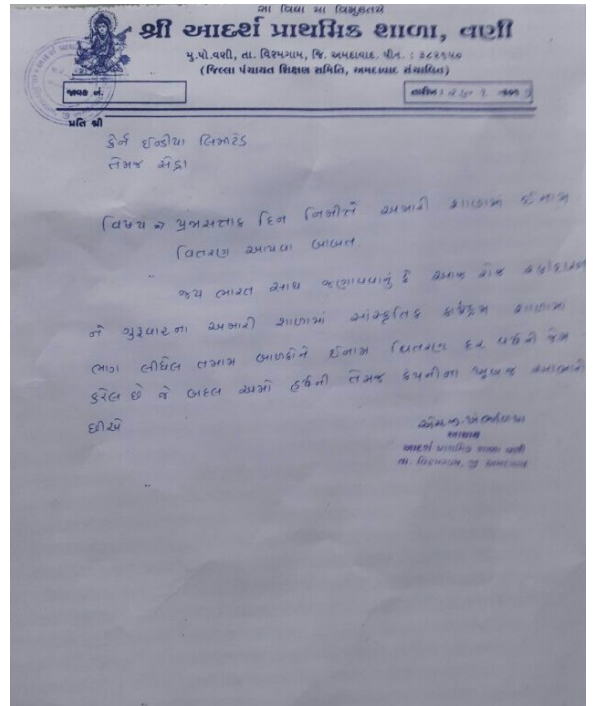 સા વિદ્યા યા વિમુક્તયે
શ્રી આદર્શ પ્રાથમિક શાળા, વણી
મુ.પો.વણી, તા. વિરમગામ, જિ. અમદાવાદ. પીન. : ૩૮૨૧૫૦
(જિલ્લા પંચાયત શિક્ષણ સમિતિ, અમદાવાદ સંચાલિત)
જાવક નં.
તારીખ :
પ્રતિ શ્રી
કેર્ન ઈન્ડીયા લિમીટેડ
તેમજ સેડ્રા
વિષય :- પ્રજાસત્તાક દિન નિમીત્તે અમારી શાળામાં ઈનામ
વિતરણ આપવા બાબત.
જય ભારત સાથ જણાવવાનું કે આજ રોજ
ને ગુરૂવારના અમારી શાળામાં સાંસ્કૃતિક કાર્યક્રમ શાળામાં
ભાગ લીધેલ તમામ બાળકોને ઈનામ વિતરણ દર વર્ષની જેમ
કરેલ છે જે બદલ અમો તેમજ કંપનીના ખુબજ આભારી
છીએ
આચાર્ય
આદર્શ પ્રાથમિક શાળા વણી
તા. વિરમગામ, જી અમદાવાદ